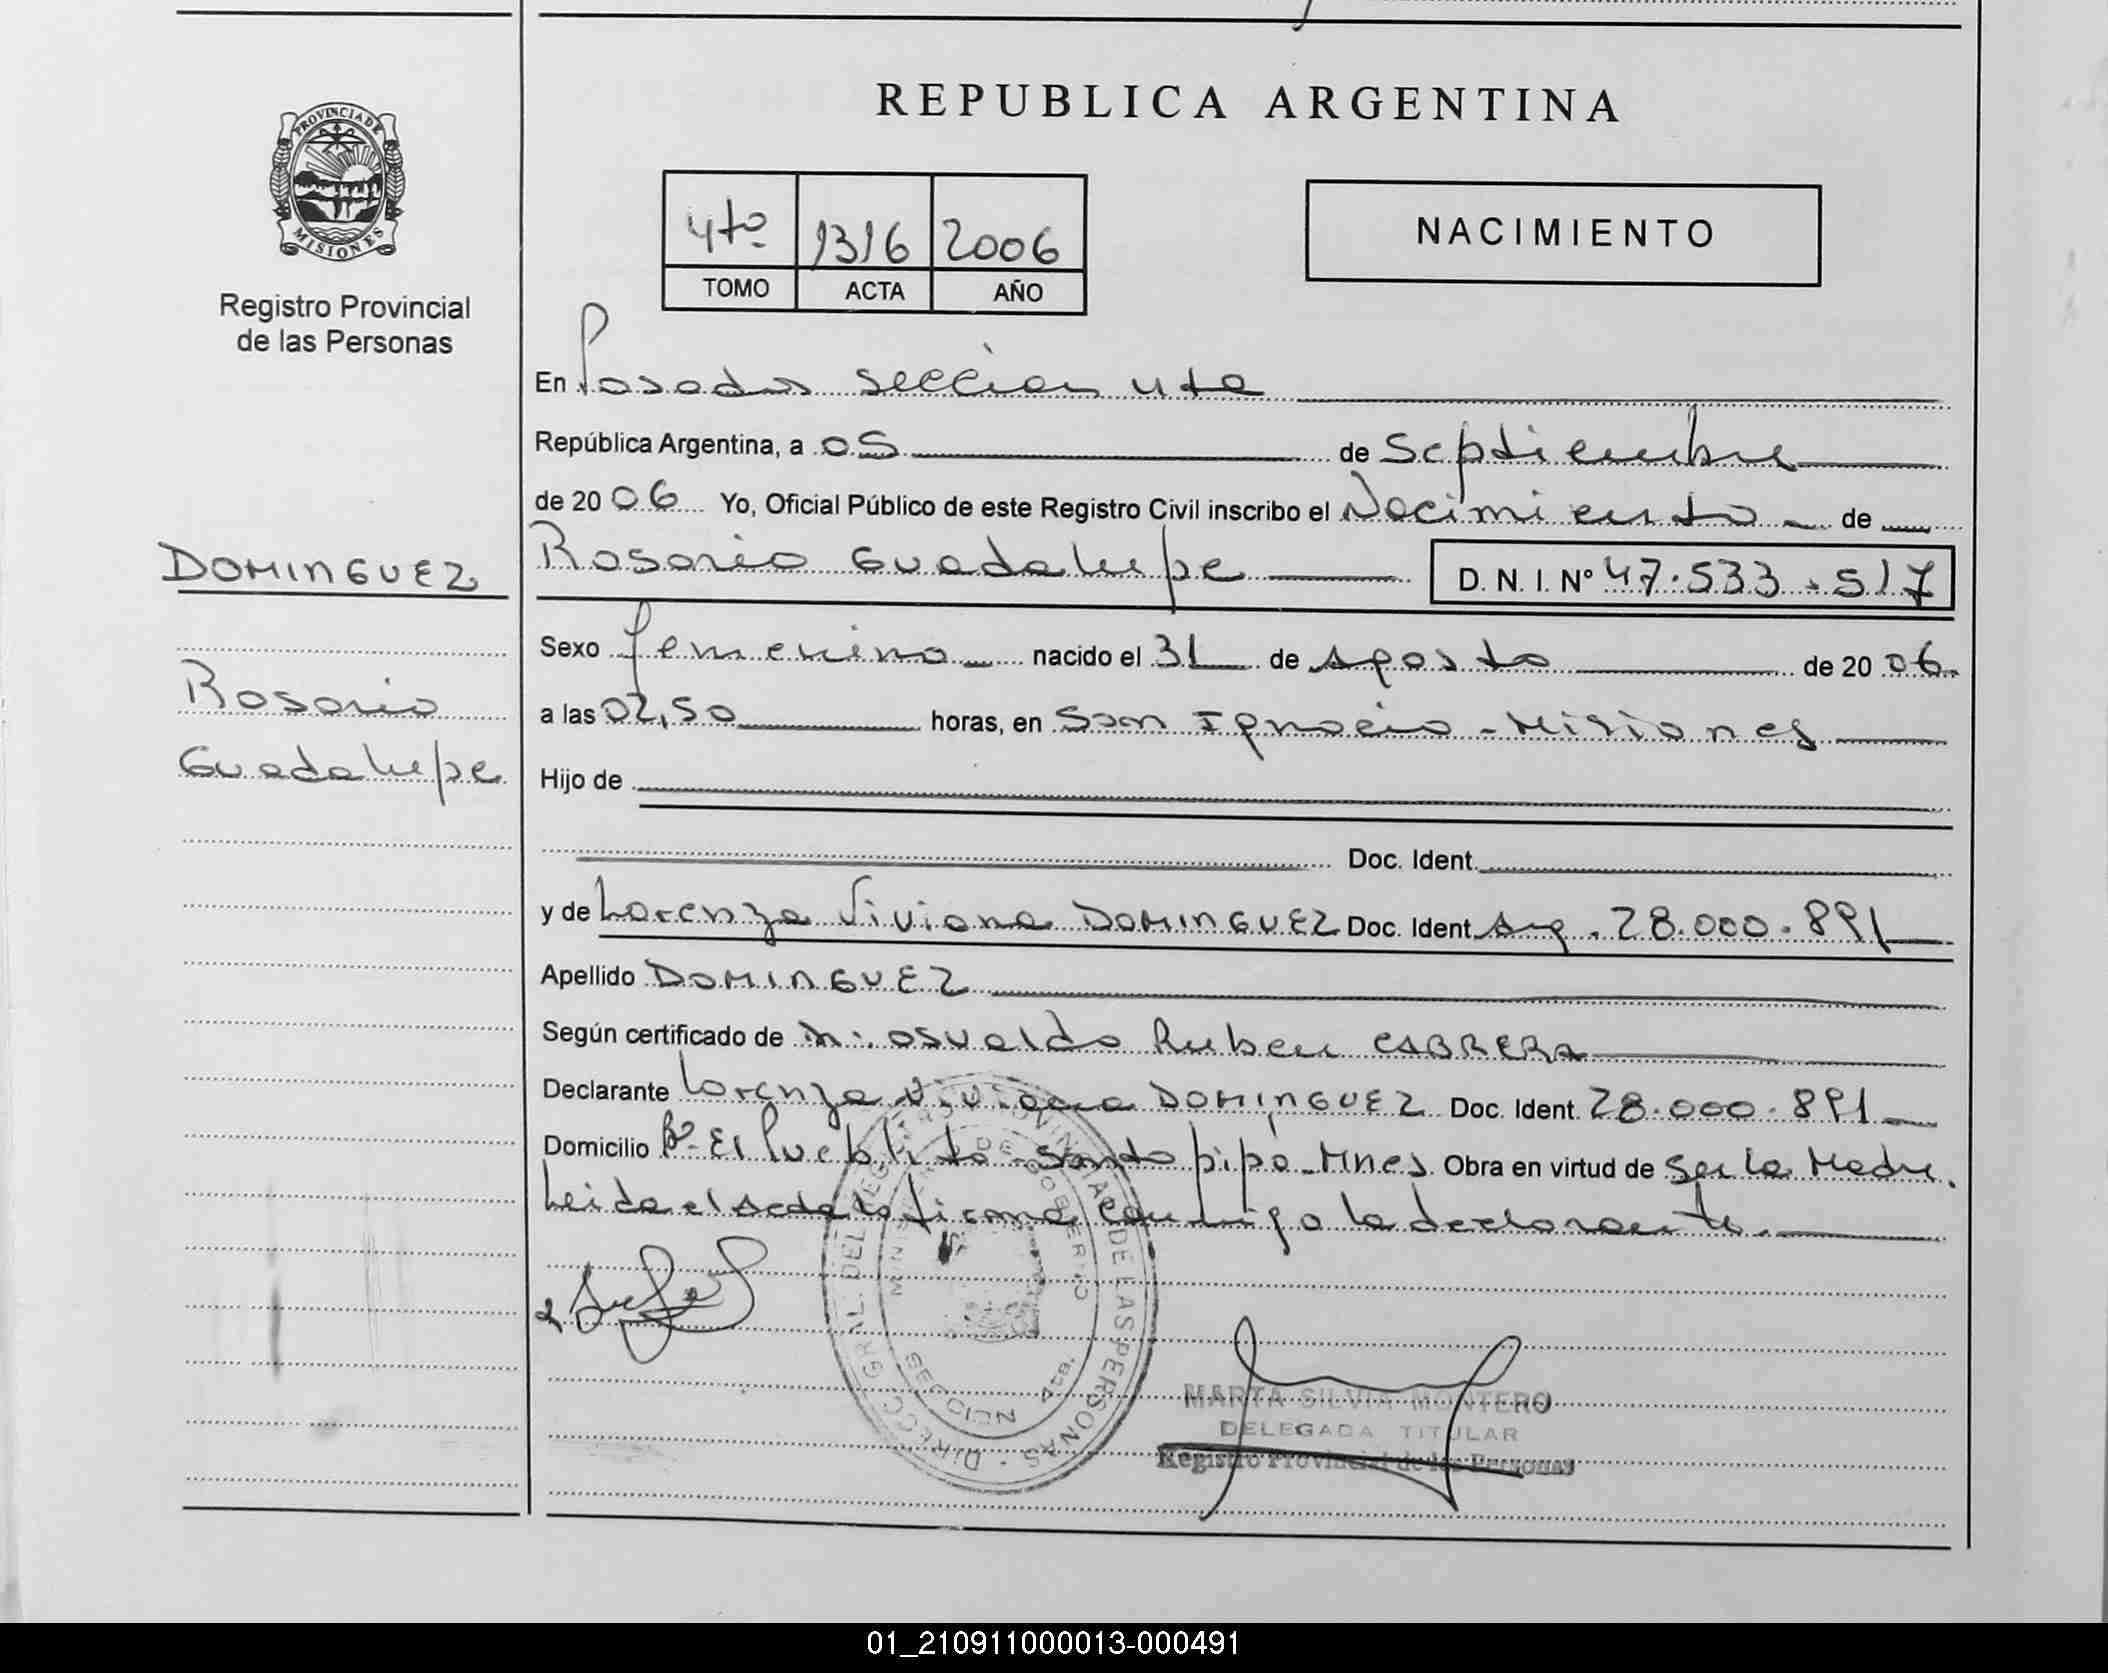 REPUBLICA ARGENTINA
PROVINCIA DE MISIONES
Registro Provincial
de las Personas
4to 1316 2006
TOMO ACTA AÑO
NACIMIENTO
En Posadas sección 4ta
República Argentina, a 05 de Septiembre
de 2006 Yo, Oficial Público de este Registro Civil inscribo el Nacimiento de
DOMINGUEZ
Rosario Guadalupe
Rosario Guadalupe D.N.I. Nº 47.533.517
Sexo femenino nacido el 31 de Agosto de 2006
a las 02,50 horas, en San Ignacio - Misiones
Hijo de
Doc. Ident.
y de Lorenza Viviana DOMINGUEZ Doc. Ident. Arg. 28.000.891
Apellido DOMINGUEZ
Según certificado de Osvaldo Ruben CABRERA
Declarante Lorenza Viviana DOMINGUEZ Doc. Ident. 28.000.891
Domicilio Bº El Pueblito - Santo pipó - Mnes. Obra en virtud de Ser la Madre.
Leida el Acta la firma conmigo la declarante.
DIRECC. GRAL. DEL REG. PROVINCIAL DE LAS PERSONAS
MINISTERIO DE GOBIERNO
SECCION 4ta.
MARTA SILVIA MONTERO
DELEGADA TITULAR
Registro Provincial de las Personas
01_210911000013-000491